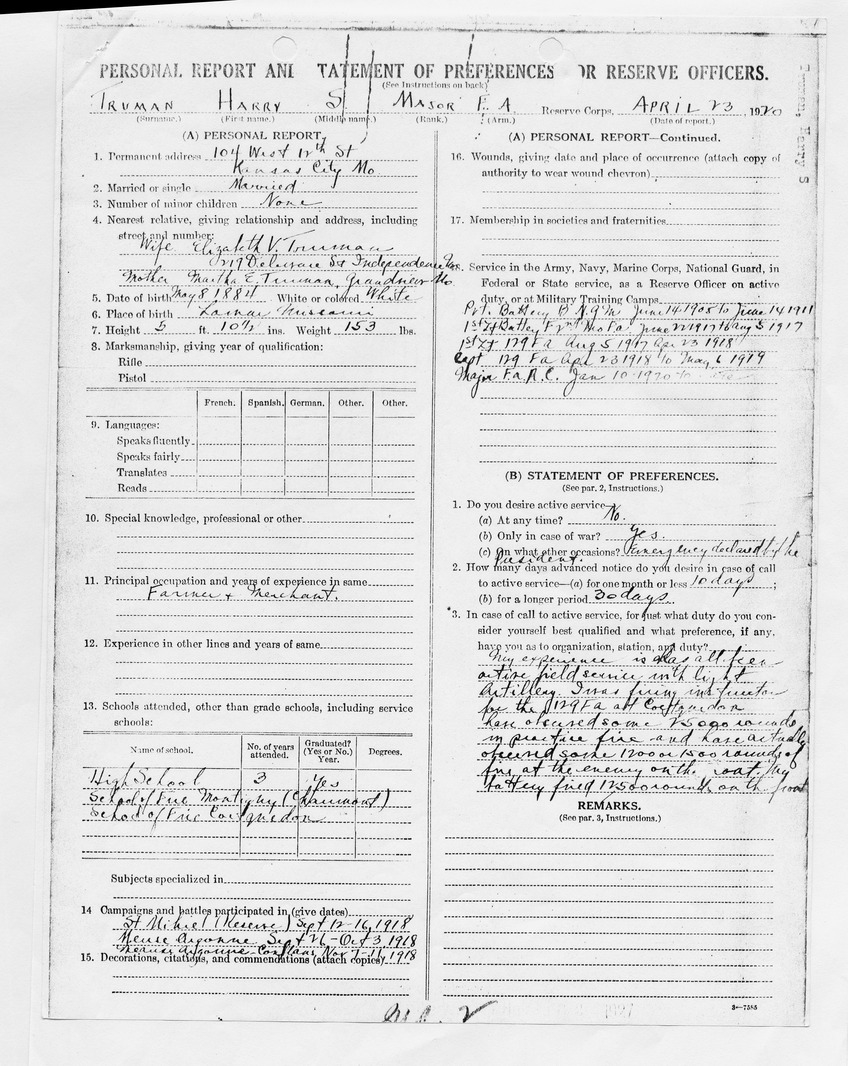 PERSONAL REPORT AND STATEMENT OF PREFERENCES FOR RESERVE OFFICERS.
(See Instructions on back)
TRUMAN HARRY S MAJOR F.A. Reserve Corps, APRIL 23, 1920
(Surname.) (First name.) (Middle name.) (Rank.) (Arm.) (Date of report.)
Truman, Harry S
(A) PERSONAL REPORT.
1. Permanent address 104 West 12th St
Kansas City Mo.
2. Married or single Married
3. Number of minor children None
4. Nearest relative, giving relationship and address, including
street and number:
Wife Elizabeth V. Truman
219 Delaware St Independence Mo.
Mother Martha E. Truman, Grandview Mo
5. Date of birth May 8 1884 White or colored White
6. Place of birth Lamar Missouri
7. Height 5 ft. 10½ ins. Weight 153 lbs.
8. Marksmanship, giving year of qualification:
Rifle
Pistol
French. Spanish. German. Other. Other.
9. Languages:
Speaks fluently
Speaks fairly
Translates
Reads
10. Special knowledge, professional or other
11. Principal occupation and years of experience in same
Farmer + Merchant.
12. Experience in other lines and years of same
13. Schools attended, other than grade schools, including service
schools:
Name of school. No. of years attended. Graduated? (Yes or No.) Year. Degrees.
High School 3 yes
School of Fire Montigny (Chaumont)
School of Fire Coetquidon
Subjects specialized in
14 Campaigns and battles participated in (give dates)
St Mihiel (Reserve) Sept 12-16, 1918
Meuse Argonne Sept 26 - Oct 3 1918
Meuse Argonne - Conflans Nov 7-11, 1918
15. Decorations, citations, and commendations (attach copies)
(A) PERSONAL REPORT—Continued.
16. Wounds, giving date and place of occurrence (attach copy of
authority to wear wound chevron)
17. Membership in societies and fraternities
Service in the Army, Navy, Marine Corps, National Guard, in
Federal or State service, as a Reserve Officer on active
duty, or at Military Training Camps
Pvt. Battery B N.G.M. June 14 1905 to June 14 1911
1st Lt Battery F 2nd Mo Fa. June 22 1917 to Aug 5 1917
1st Lt 129 Fa Aug 5 1917 Apr 23 1918
Capt 129 Fa Apr 23 1918 to May 6 1919
Major F.A.R.C. Jan 10 1920 to
(B) STATEMENT OF PREFERENCES.
(See par. 2, Instructions.)
1. Do you desire active service—
(a) At any time? No.
(b) Only in case of war? Yes.
(c) On what other occasions? Emergency declared by the
President.
2. How many days advanced notice do you desire in case of call
to active service—(a) for one month or less 10 days;
(b) for a longer period 30 days.
*3. In case of call to active service, for just what duty do you con-
sider yourself best qualified and what preference, if any,
have you as to organization, station, and duty?
My experience has all been
active field service with light
Artillery. I was firing instructor
for the 129 Fa at Coetquidon
have observed some 25000 rounds
in practice fire and have actually
observed some 12000 or 15000 rounds of
fire at the enemy on the front. My
battery fired 12500 rounds on the front
REMARKS.
(See par. 3, Instructions.)
3—7585